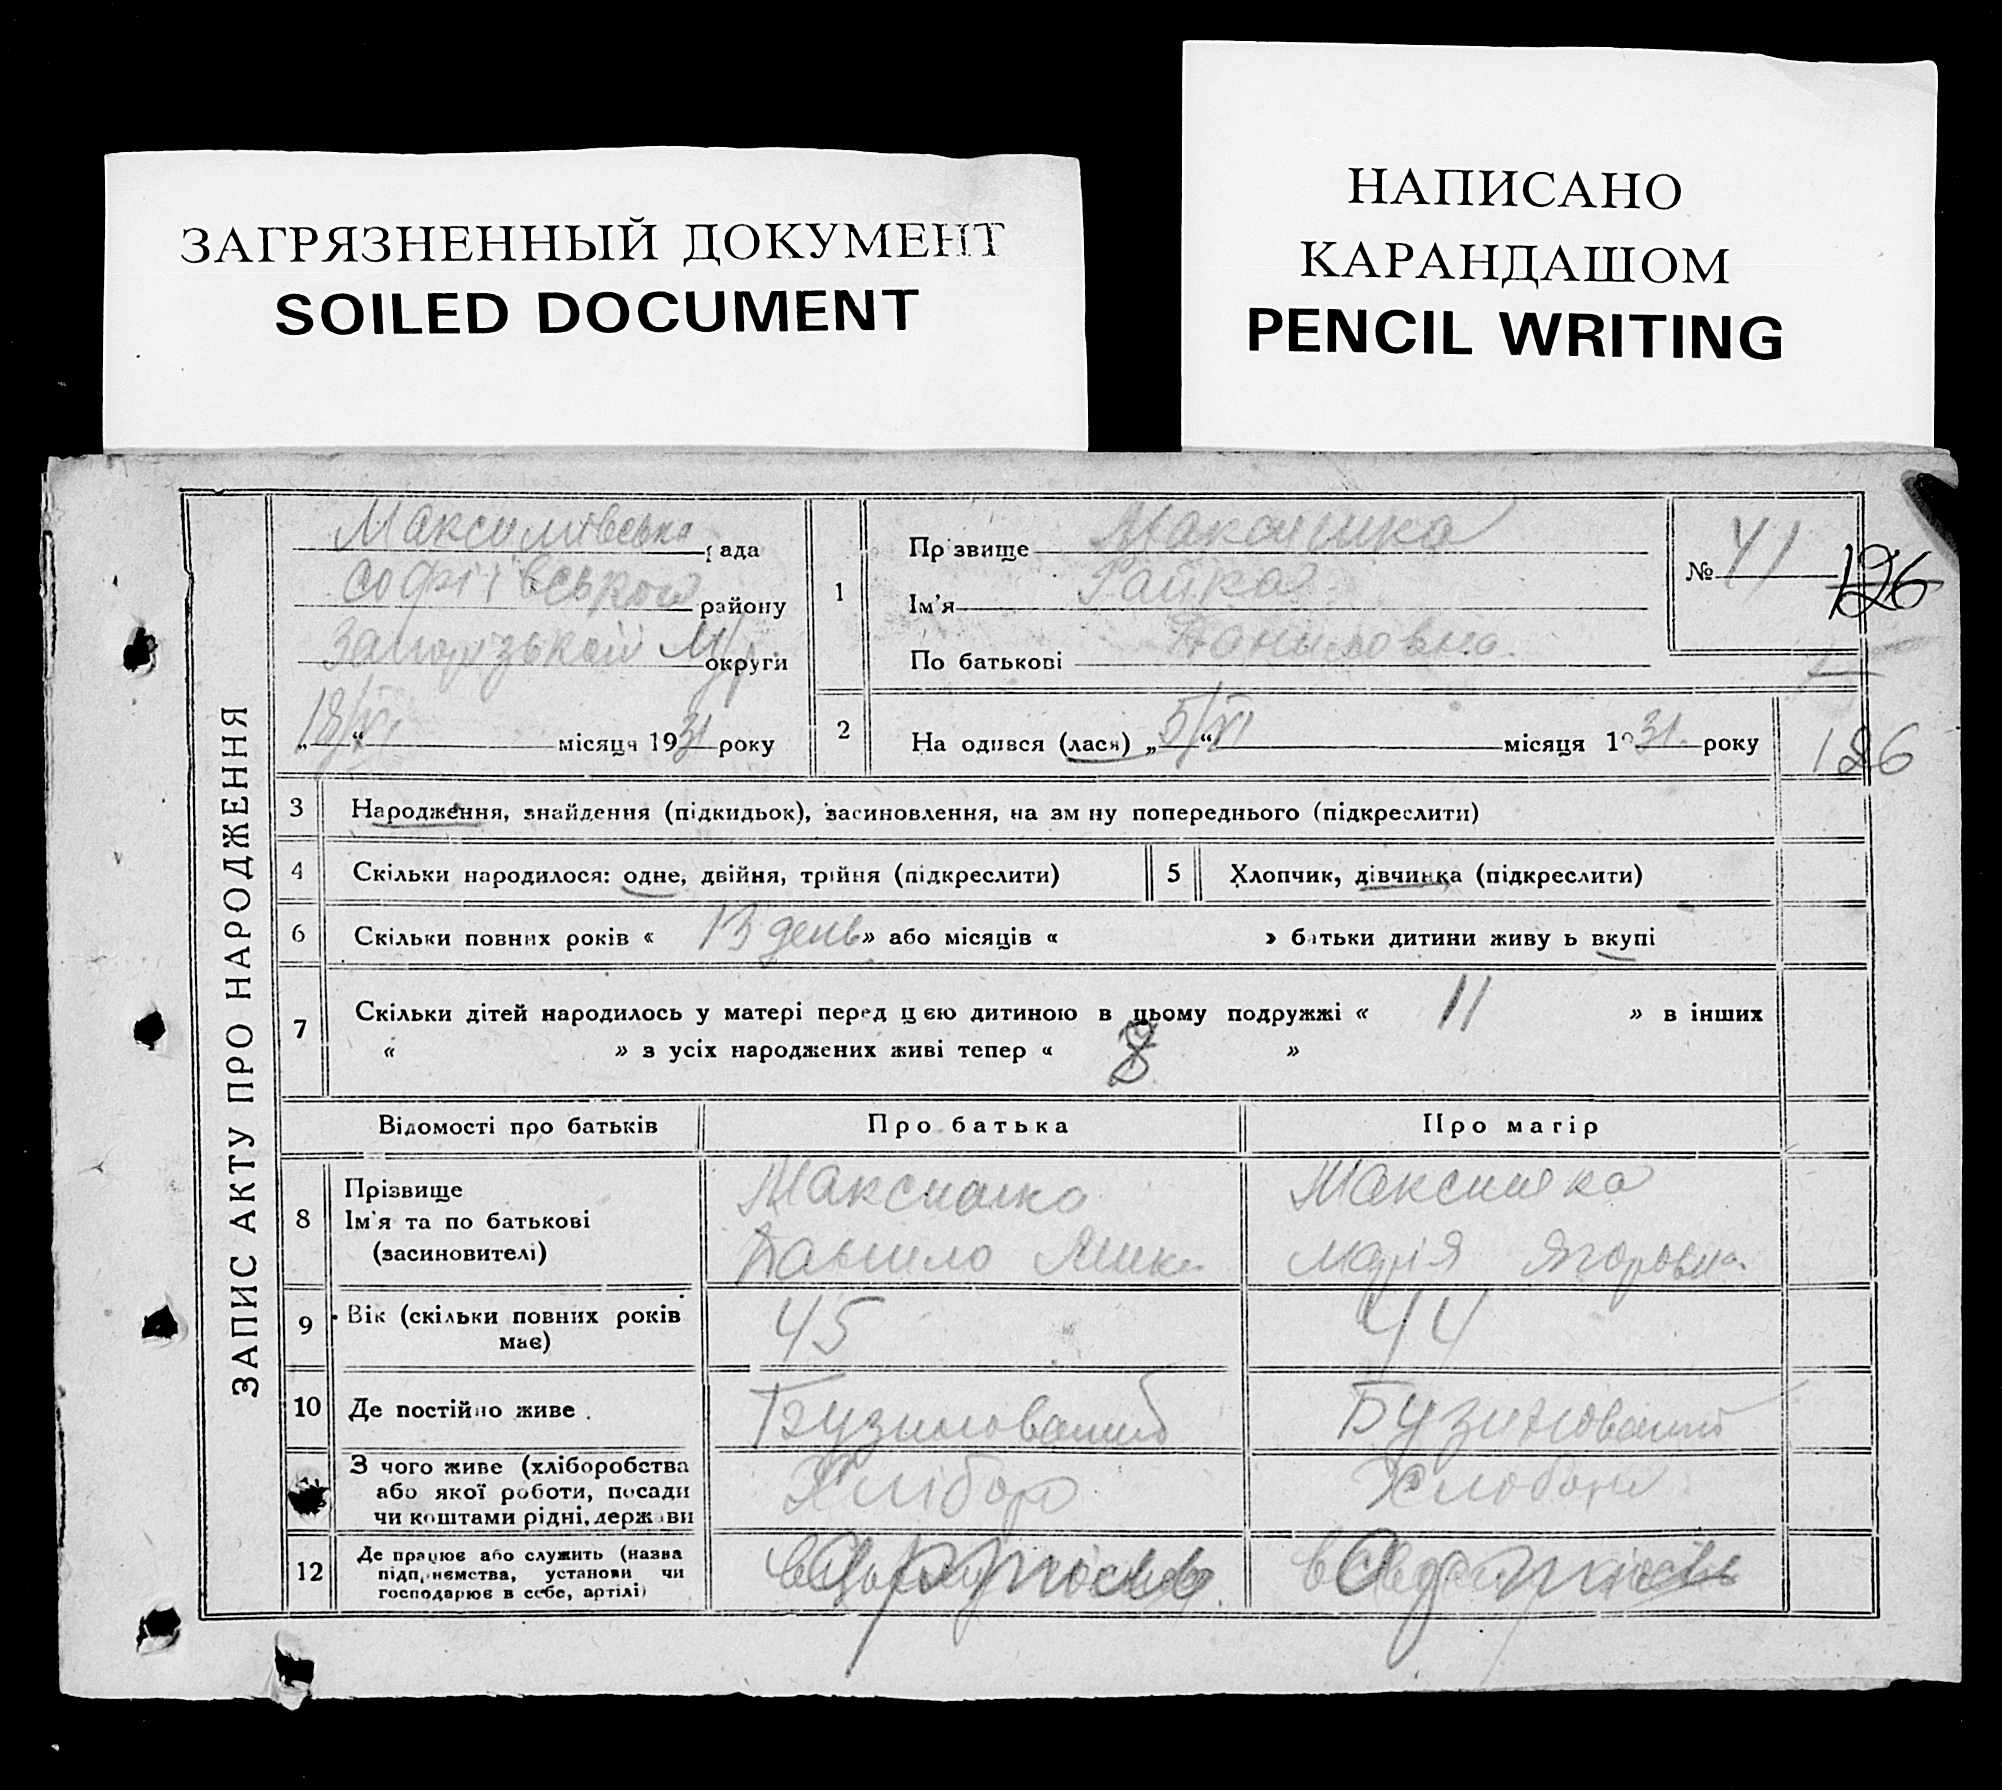 ЗАГРЯЗНЕННЫЙ ДОКУМЕНТ
SOILED DOCUMENT
НАПИСАНО
КАРАНДАШОМ
PENCIL WRITING
ЗАПИС АКТУ ПРО НАРОДЖЕННЯ
Максимівська рада
Софіївськой району
Запорізькой округи
„18/XI“ місяця 1931 року
1
Прізвище
Ім'я Райка
По батькові Даниловна
№ 41
126
2 Народився (лася) „5/XI“ місяця 1931 року
126
3 Народження, знайдення (підкидьок), засиновлення, на зміну попереднього (підкреслити)
4 Скільки народилося: одне, двійня, трійня (підкреслити)
5 Хлопчик, дівчинка (підкреслити)
6 Скільки повних років « 13 день » або місяців « » батьки дитини живуть вкупі
7 Скільки дітей народилось у матері перед цією дитиною в цьому подружжі « 11 » в інших
« » з усіх народжених живі тепер « 8 »
Відомості про батьків
Про батька
Про матір
8 Прізвище
Ім'я та по батькові
(засиновителі)
Данило
Марія Ягоровна
9 Вік (скільки повних років
має)
45
44
10 Де постійно живе
З чого живе (хліборобства
або якої роботи, посади
чи коштами рідні, держави
Хлібор
12 Де працює або служить (назва
підприємства, установи чи
господарює в себе, артілі)